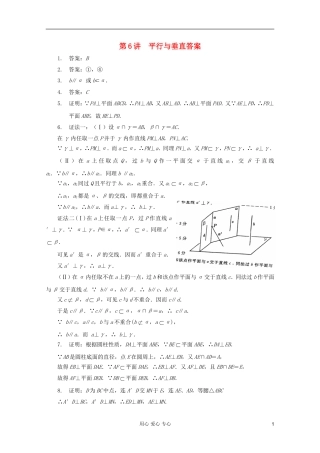 第 6 讲　平行与垂直答案
1. 答案：B
2. 答案：①，④
3.
4. 答案：C
5. 证明：∵PA⊥平面ABCD，∴PA⊥AB，又AB⊥AD，∴AB⊥平面PAD．又∵AE⊥PD，∴PD⊥平面ABE，故BE⊥PD．
6. 证法一：（Ⅰ）设
在 γ 内任取一点P并于 γ 内作直线PM⊥AB，PN⊥AC．
∵ γ⊥α，∴PM⊥α．而 a⊂α，∴PM⊥a．同理PN⊥a．又PM⊂γ，PN⊂γ，∴a⊥γ．
（Ⅱ）在 a 上任取点 Q，过 b 与 Q 作一平面交 α 于直线 a₁，交 β 于直线
a₂．∵b∥α，∴b∥a₁．同理 b∥a₂．
∵a₁，a₂同过 Q 且平行于 b，∵a₁，a₂重合．又 a₁⊂α，a₂⊂β，
∴a₁，a₂都是 α、β 的交线，即都重合于 a．
∵b∥a₁，∴b∥a．而 a⊥γ，∴b⊥γ．
证法二（Ⅰ）在 a 上任取一点 P，过 P 作直线 a
′⊥γ．∵ α⊥γ，P∈α，∴a′⊂α．同理 a′⊂β．
可见 a′是 α，β 的交线．因而 a′重合于 a．
又 a′⊥γ，∴ a⊥γ．
（Ⅱ）在 α 内任取不在 a 上的一点，过 b 和该点作平面与 α 交于直线 c．同法过 b 作平面
与 β 交于直线 d．∵ b∥α，b∥β．∴ b∥c，b∥d．
又 c⊄β，d⊂β，可见 c 与 d 不重合．因而 c∥d．
于是 c∥β．∵ c∥β，c⊂α，α∩β＝a，∴ c∥a．
∵ b∥c，a∥c，b 与 a 不重合（b⊄α，a⊂α），
∴ b∥a．而 a⊥γ，∴ b⊥γ．
7. 证明：根据圆柱性质，DA⊥平面ABE，∵BE⊂平面ABE，∴DA⊥BE．
∵AB是圆柱底面的直径，点E在圆周上，∴AE⊥EB．又AE∩AD＝A，
故得EB⊥平面DAE．∵AF⊂平面DAE，∴EB⊥AF．又AF⊥DE，且EB∩DE＝E，
故得AF⊥平面DEB．∵DB⊂平面DEB，∴AF⊥DB．
8. 证明：D为BC中点，连A′D，交MN于E点，连AE，等腰△ABC
∴A′D⊥BC，A′D⊥MN，∴A′E⊥MN，DE⊥MN，
用心 爱心 专心　1